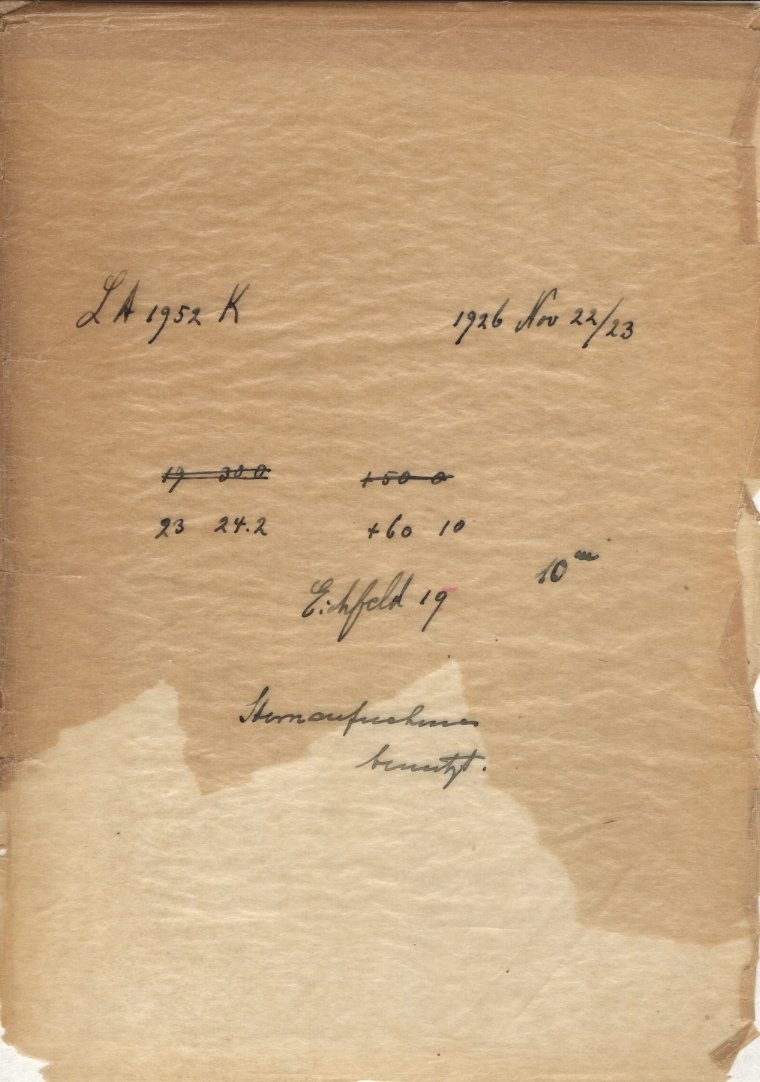 LA 1952 K 1926 Nov 22/23
19 30.0 +50 0
23 24.2 +60 10
10ᵐ
Eichfeld 19
Sternaufnahmen
benutzt.